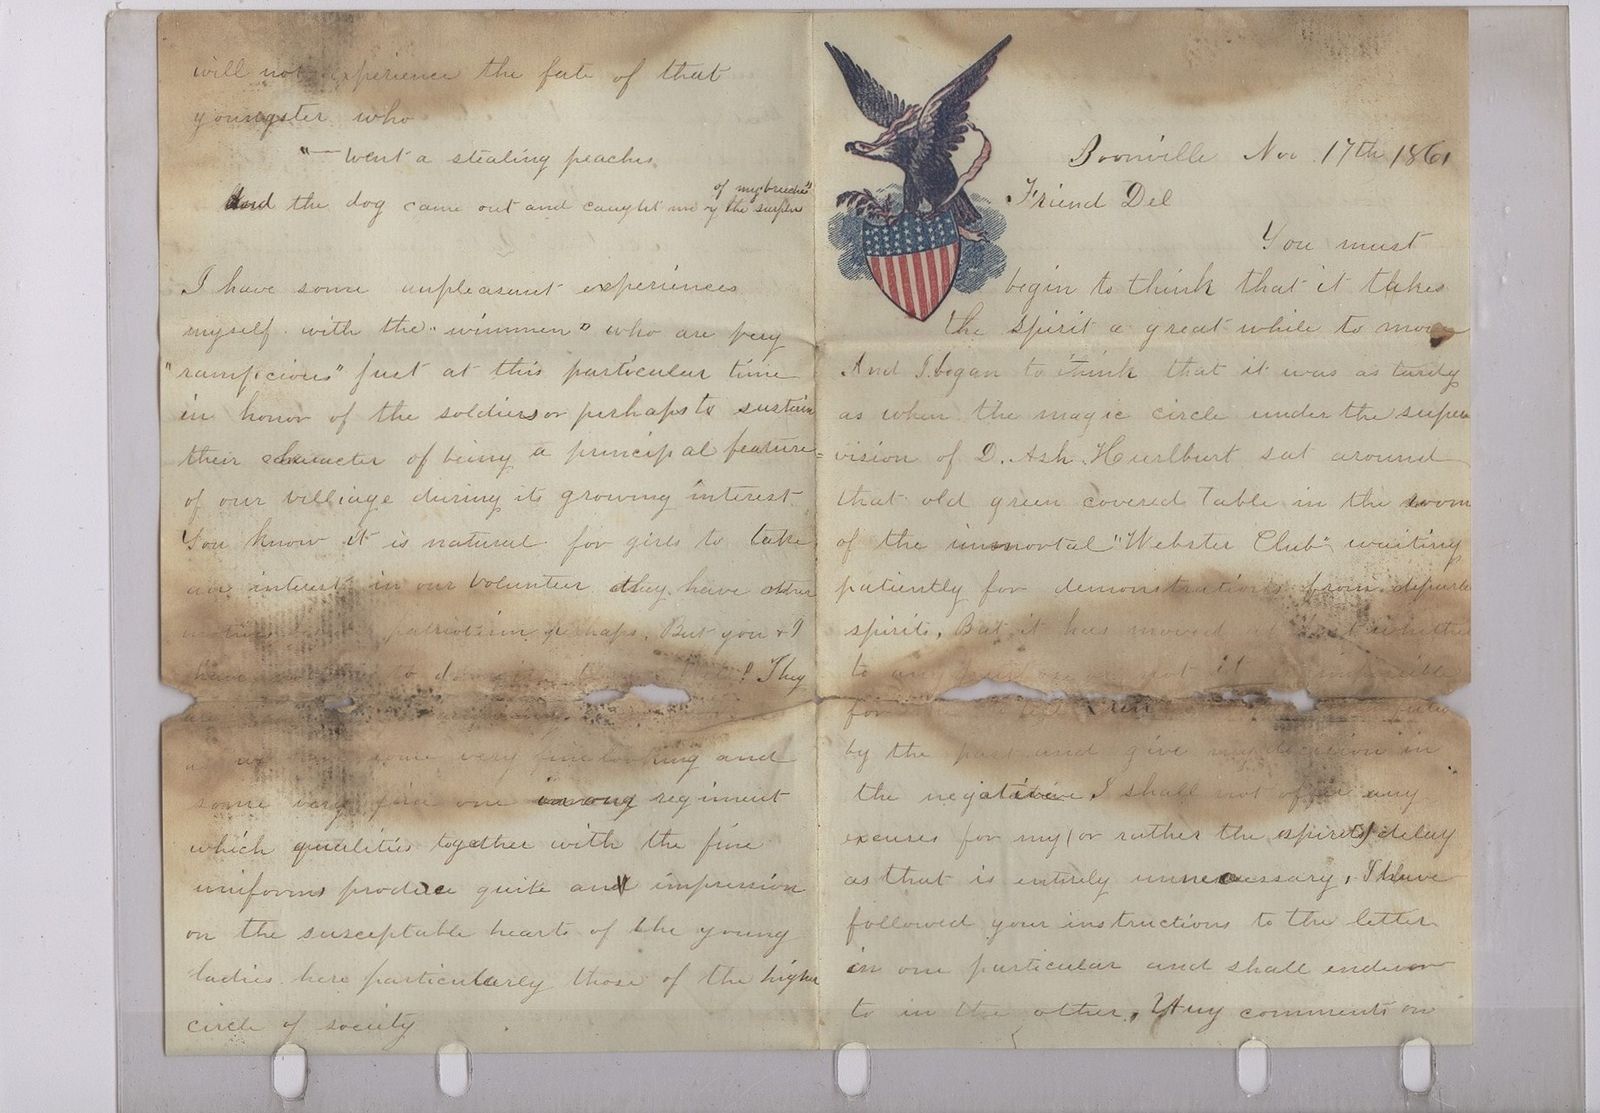 Boonville Nov. 17th 1861
Friend Del
You must
begin to think that it takes
the spirit a great while to move
And I began to think that it was as tardy
as when the magic circle under the super
vision of D. Ash. Hurlburt sat around
that old green covered Table in the room
of the immortal "Webster Club", waiting
patiently for demonstrations from departe
spirits. But it has moved
to
for
by the past and give my decision in
the negative, I shall not offer any
excuses for my (or rather the spirits) delay
as that is entirely unnecessary, I have
followed your instructions to the letter
in one particular and shall endevor
to in the other. Any comments on
will not experience the fate of that
youngster who
"— Went a stealing peaches
of my breeches"
And the dog came out and caught me by the
I have some unpleasant experiences
myself with the "wimmen" who are very
"rampicious" just at this particular time
in honor of the soldiers or perhaps to sustain
their character of being a principal feature
of our villiage during its growing interest.
You know it is natural for girls to take
an interest in our Volunteer they have other
patriotism perhaps. But you & I
have to ! They
some very fine looking and
some very fine one among regiment
which qualities together with the fine
uniforms produce quite an impression
on the susceptable hearts of the young
ladies here particularly those of the higher
circle of society